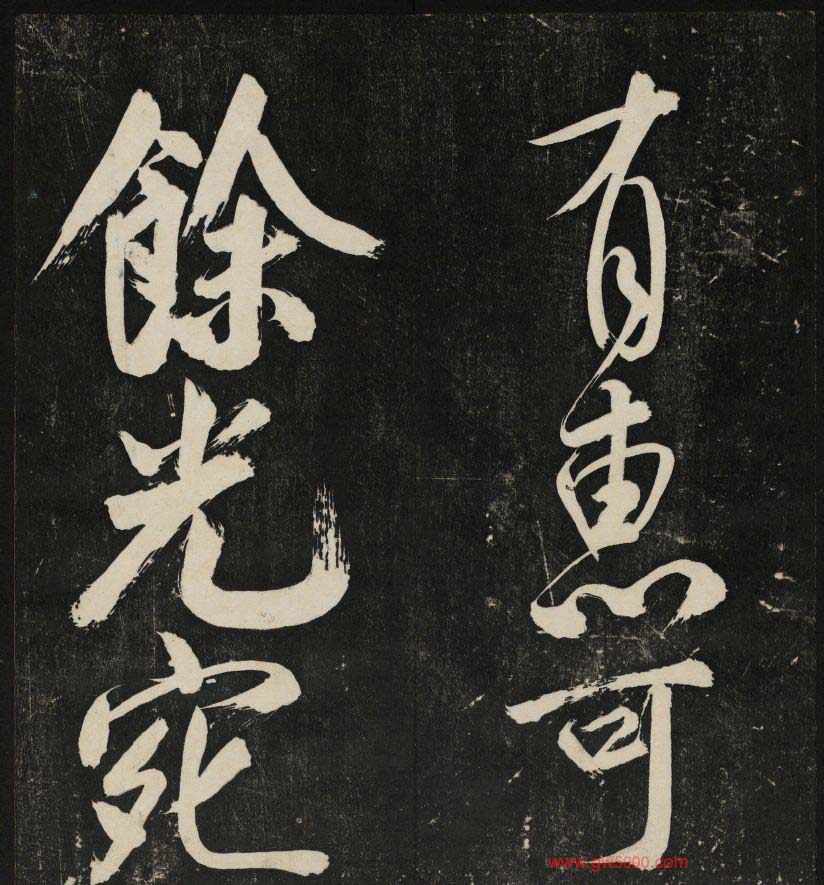 有惠可
餘光宛
www.gw5000.com